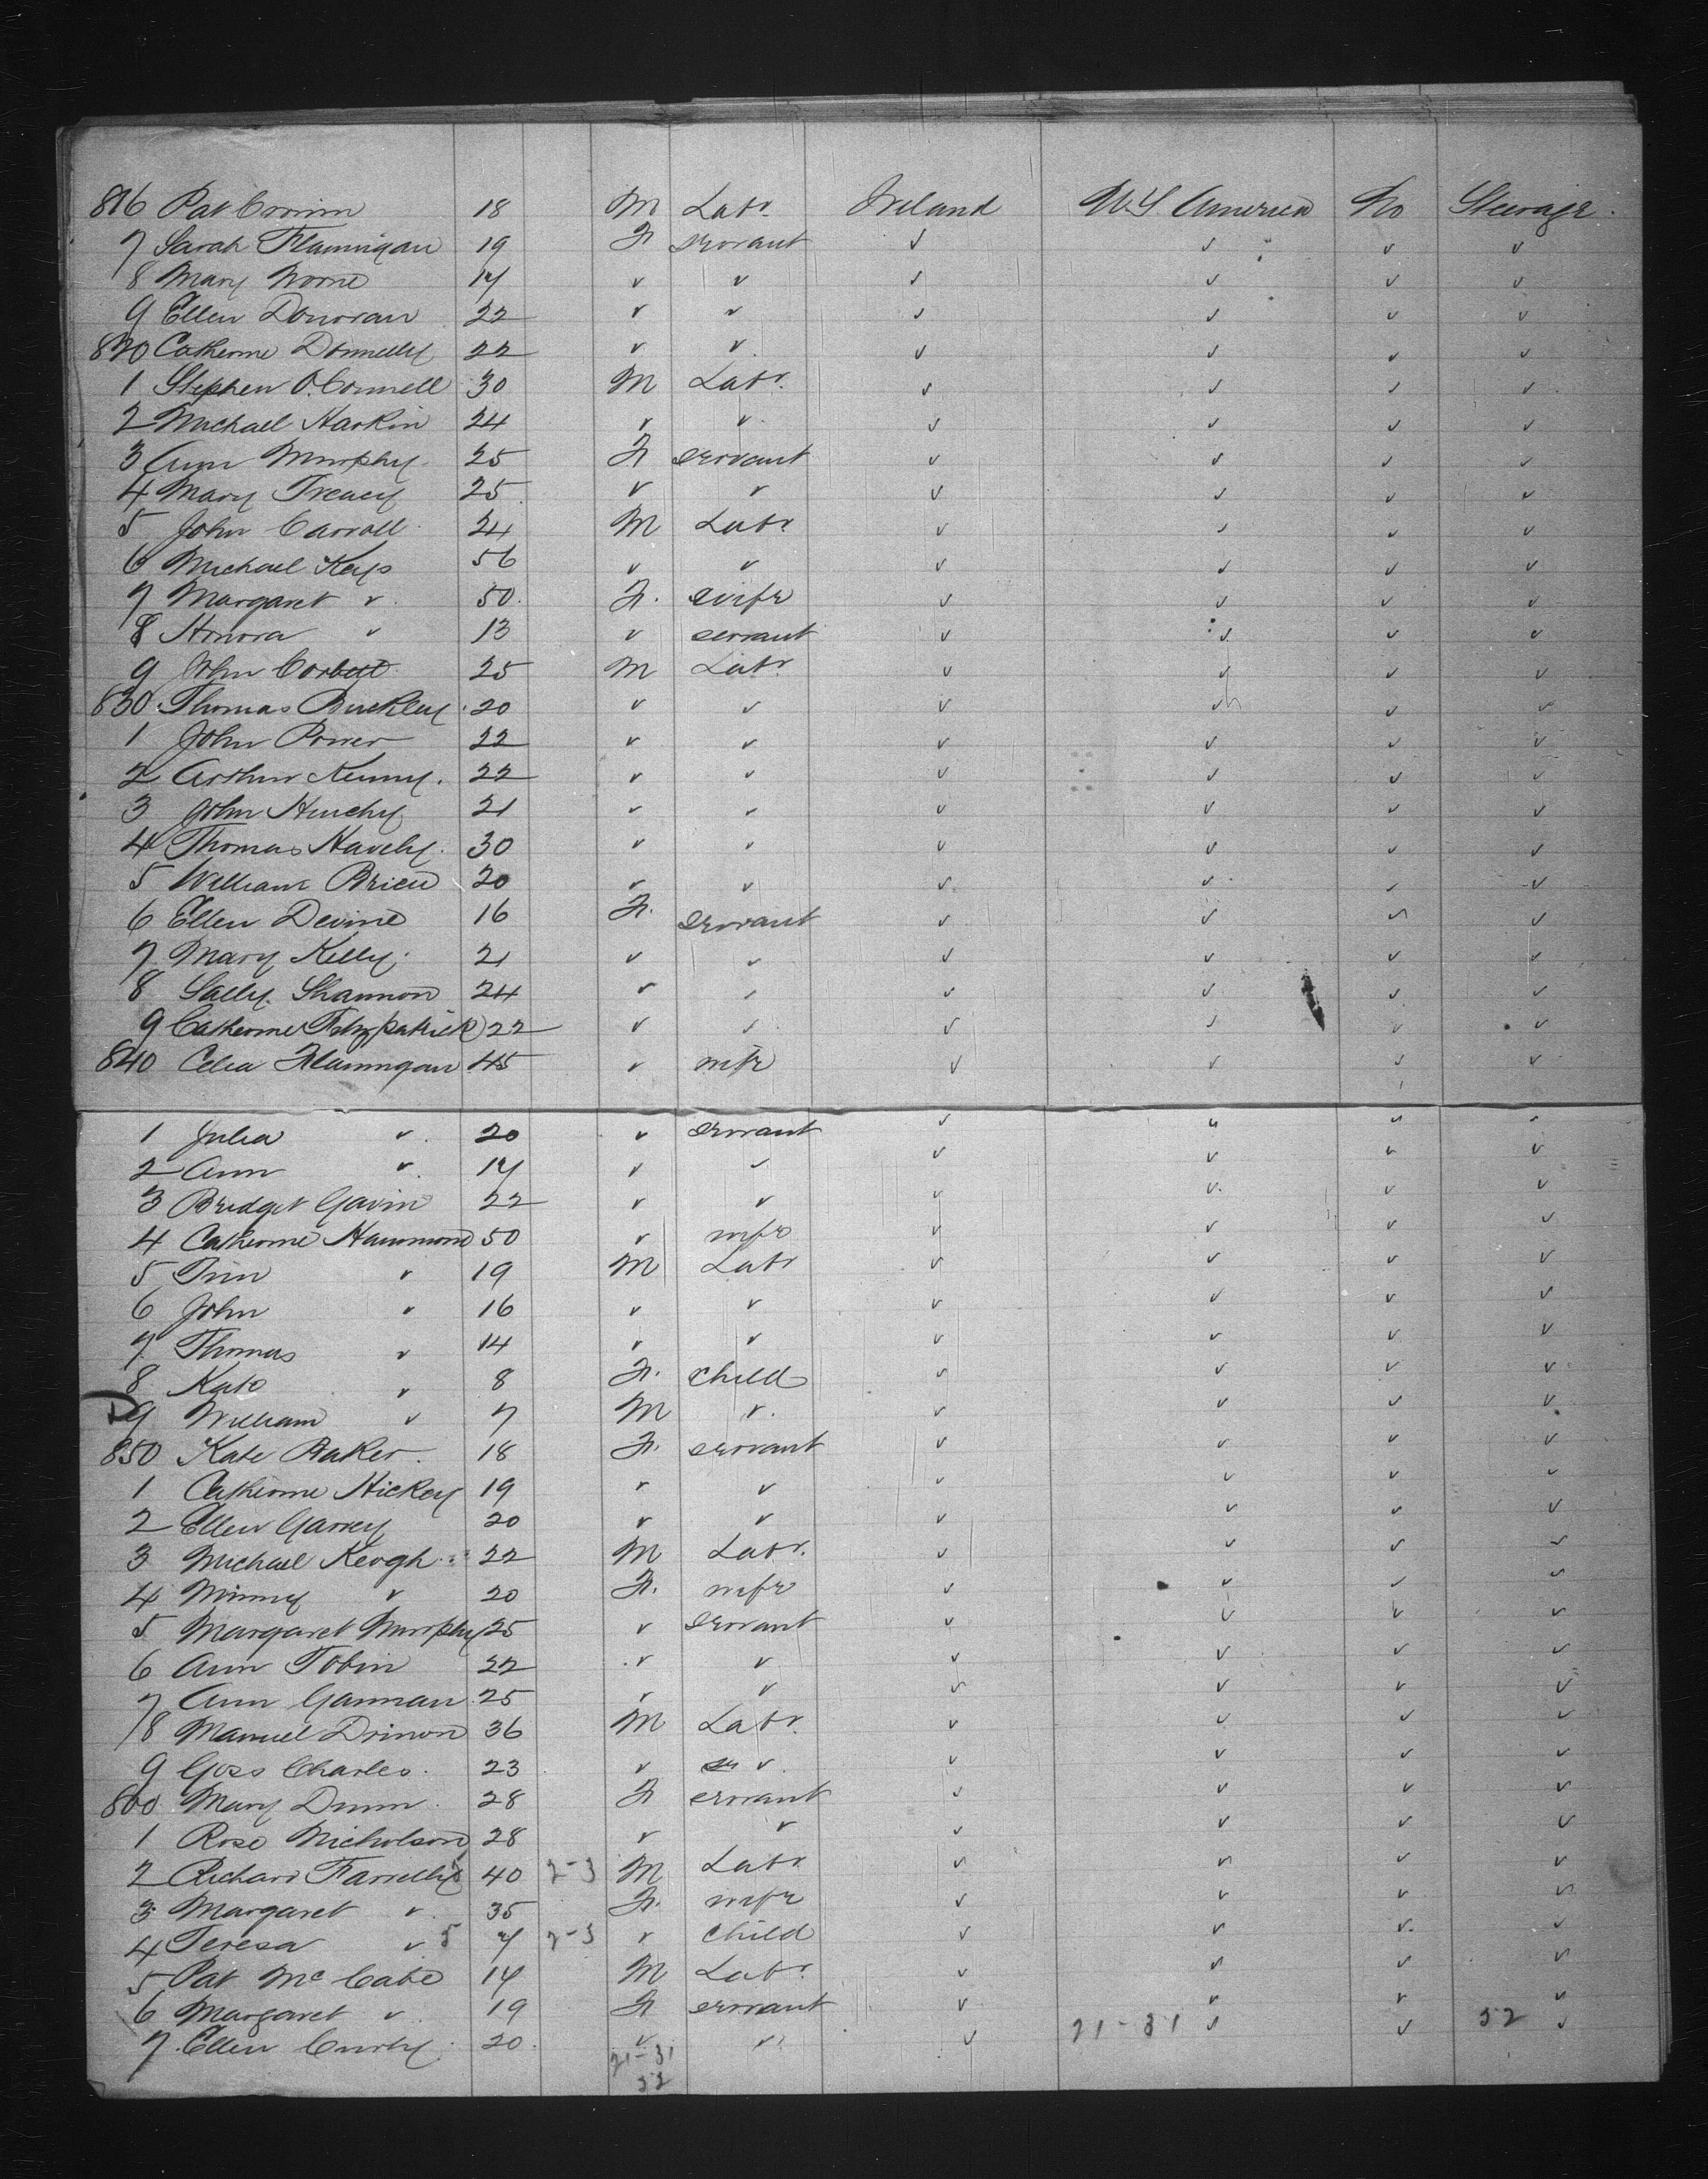 816 Pat Cronin 18 M Labr. Ireland U.S. America No Steerage.
7 Sarah Flannigan 19 F servant ✓ ✓ ✓ ✓
8 Mary 17 ✓ ✓ ✓ ✓ ✓ ✓
9 Ellen Donovan 22 ✓ ✓ ✓ ✓ ✓ ✓
820 Catherine Donnelly 22 ✓ ✓ ✓ ✓ ✓ ✓
1 Stephen O'Connell 30 M Labr. ✓ ✓ ✓ ✓
2 Michael Harkin 24 ✓ ✓ ✓ ✓ ✓ ✓
3 Ann Murphy 25 F servant ✓ ✓ ✓ ✓
4 Mary Treacy 25 ✓ ✓ ✓ ✓ ✓ ✓
5 John Carroll 24 M Labr ✓ ✓ ✓ ✓
6 Michael Keys 56 ✓ ✓ ✓ ✓ ✓ ✓
7 Margaret ✓ 50 F. wife ✓ ✓ ✓ ✓
8 Honora ✓ 13 ✓ servant ✓ ✓ ✓ ✓
9 John Corbett 25 M Labr ✓ ✓ ✓ ✓
830 Thomas Buckley 20 ✓ ✓ ✓ ✓ ✓ ✓
1 John Power 22 ✓ ✓ ✓ ✓ ✓ ✓
2 Arthur Kenny. 22 ✓ ✓ ✓ ✓ ✓ ✓
3 John Hinchy 21 ✓ ✓ ✓ ✓ ✓ ✓
4 Thomas 30 ✓ ✓ ✓ ✓ ✓ ✓
5 William Brien 20 ✓ ✓ ✓ ✓ ✓ ✓
6 Ellen Devine 16 F. servant ✓ ✓ ✓ ✓
7 Mary Kelly 21 ✓ ✓ ✓ ✓ ✓ ✓
8 Sally Shannon 24 ✓ ✓ ✓ ✓ ✓ ✓
9 Catherine Fitzpatrick 22 ✓ ✓ ✓ ✓ ✓ ✓
840 Celia Flannigan 45 ✓ wife ✓ ✓ ✓ ✓
1 Julia ✓ 20 ✓ servant ✓ ✓ ✓ ✓
2 Ann ✓ 17 ✓ ✓ ✓ ✓ ✓ ✓
3 Bridget Gavin 22 ✓ ✓ ✓ ✓ ✓ ✓
4 Catherine Hammond 50 ✓ wife ✓ ✓ ✓ ✓
5 Tim ✓ 19 M Labr ✓ ✓ ✓ ✓
6 John ✓ 16 ✓ ✓ ✓ ✓ ✓ ✓
7 Thomas ✓ 14 ✓ ✓ ✓ ✓ ✓ ✓
8 Kate ✓ 8 F. child ✓ ✓ ✓ ✓
9 William ✓ 7 M ✓ ✓ ✓ ✓ ✓
850 Kate Baker 18 F. servant ✓ ✓ ✓ ✓
1 Catherine Hickey 19 ✓ ✓ ✓ ✓ ✓ ✓
2 Ellen Garvey 20 ✓ ✓ ✓ ✓ ✓ ✓
3 Michael Keogh 22 M Labr. ✓ ✓ ✓ ✓
4 Winny ✓ 20 F. wife ✓ ✓ ✓ ✓
5 Margaret Murphy 25 ✓ servant ✓ ✓ ✓ ✓
6 Ann Tobin 22 ✓ ✓ ✓ ✓ ✓ ✓
7 Ann Gannan 25 ✓ ✓ ✓ ✓ ✓ ✓
8 Manuel 36 M Labr. ✓ ✓ ✓ ✓
9 Goss Charles 23 ✓ ✓ ✓ ✓ ✓ ✓
860 Mary Dunn 28 F servant ✓ ✓ ✓ ✓
1 Rose Nicholson 28 ✓ ✓ ✓ ✓ ✓ ✓
2 Richard Farrelly 40 2-3 M Labr ✓ ✓ ✓ ✓
3 Margaret ✓ 35 F. wife ✓ ✓ ✓ ✓
4 Teresa ✓ 5 7 2-3 ✓ child ✓ ✓ ✓ ✓
5 Pat McCabe 17 M Labr. ✓ ✓ ✓ ✓
6 Margaret ✓ 19 F servant ✓ ✓ ✓ ✓
7 Ellen 20 ✓ ✓ ✓ 21-31 ✓ ✓ 32 ✓
21-31
32